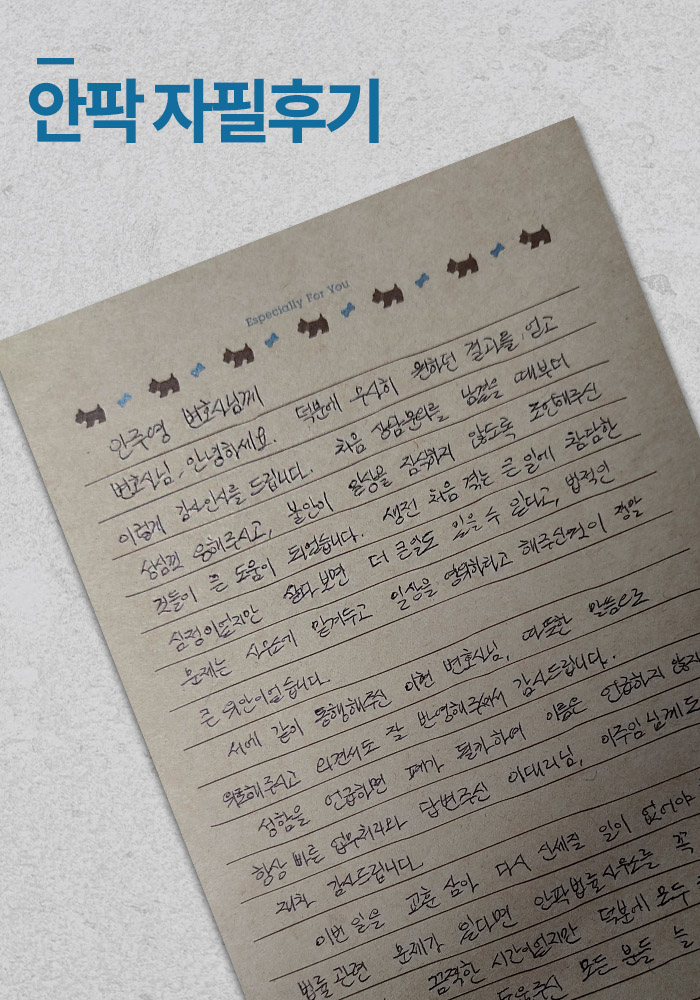 안팍 자필후기
Especially For You
안주영 변호사님께
변호사님, 안녕하세요. 덕분에 무사히 원하던 결과를 얻고
이렇게 감사인사를 드립니다. 처음 상담문의를 남겼을 때부터
성심껏 응해주시고, 불안이 일상을 잠식하지 않도록 조언해주신
것들이 큰 도움이 되었습니다. 생전 처음 겪는 큰 일에 참담한
심정이었지만 살다보면 더 큰일도 있을 수 있다고, 법적인
문제는 사무소에 맡겨두고 일상을 영위하라고 해주신것이 정말
큰 위안이었습니다.
서에 같이 동행해주신 이헌 변호사님, 따뜻한 말씀으로
위로해주시고 의견서도 잘 반영해주셔서 감사드립니다.
성함을 언급하면 폐가 될까하여 이름은 언급하지 않지
항상 빠른 업무처리와 답변주신 이대리님, 이주임님께도
재차 감사드립니다.
이번 일을 교훈 삼아 다시 신세질 일이 없어야
법률관련 문제가 있다면 안팍법률사무소를 꼭
끔찍한 시간이었지만 덕분에 모두
도움주신 모든 분들 늘